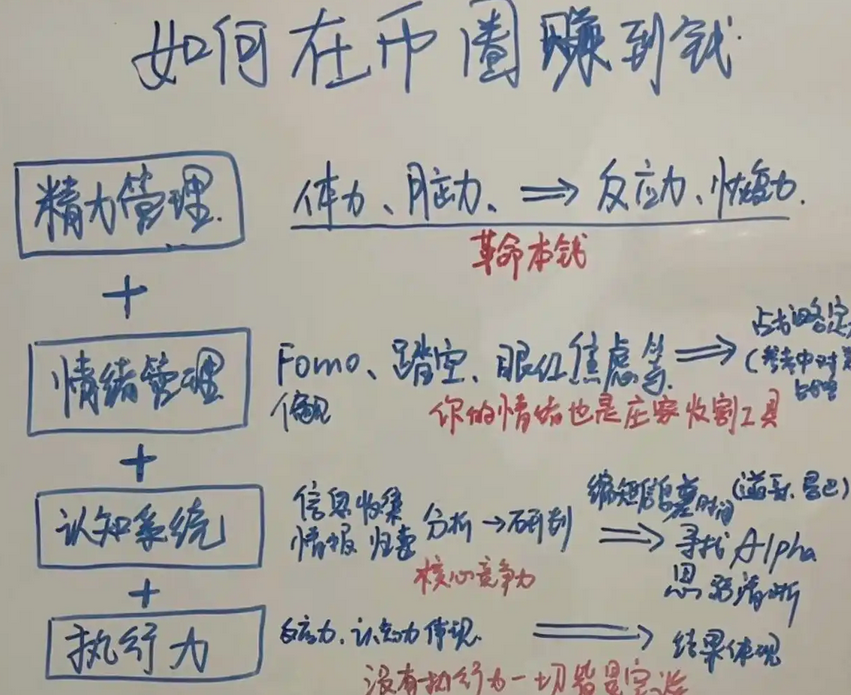 如何在币圈赚到钱
精力管理. 体力、脑力、⇒ 反应力、恢复力.
革命本钱
+
情绪管理 Fomo、踏空、眼红焦虑等. ⇒ 战略定
偏见 (参考中对
你的情绪也是庄家收割工具
+
认知系统 信息收集 分析→研判 缩短信息时间
情报 归零 ⇒ 寻找Alpha
核心竞争力 思路清晰
+
执行力 反应力、认知力体现. ⇒ 结果体现
没有执行力一切皆是空谈